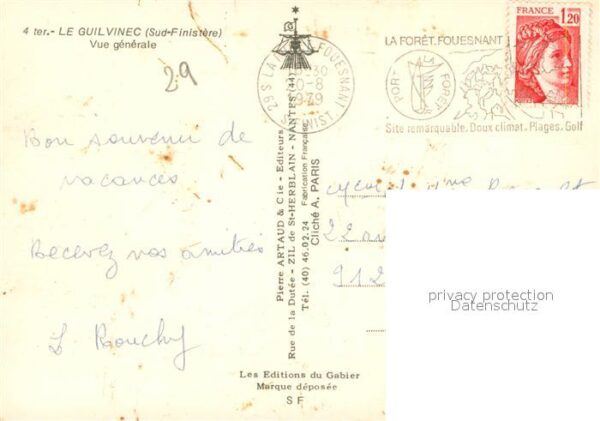 4 ter.- LE GUILVINEC (Sud-Finistère)
Vue générale
29
Bon souvenir de
vacances
Recevez nos amitiés
Pierre ARTAUD & Cie - Editeurs
Rue de la Dutée - ZIL de St-HERBLAIN - NANTES (44)
Tél. (40) 46.02.24 Fabrication Française
Cliché A. PARIS
Les Editions du Gabier
Marque déposée
SF
29 S LA FOUESNANT
10-8
1979
FINIST.
LA FORÊT.FOUESNANT
PORT FORÊT
Site remarquable. Doux climat. Plages. Golf
FRANCE
1,20
22
912
privacy protection
Datenschutz